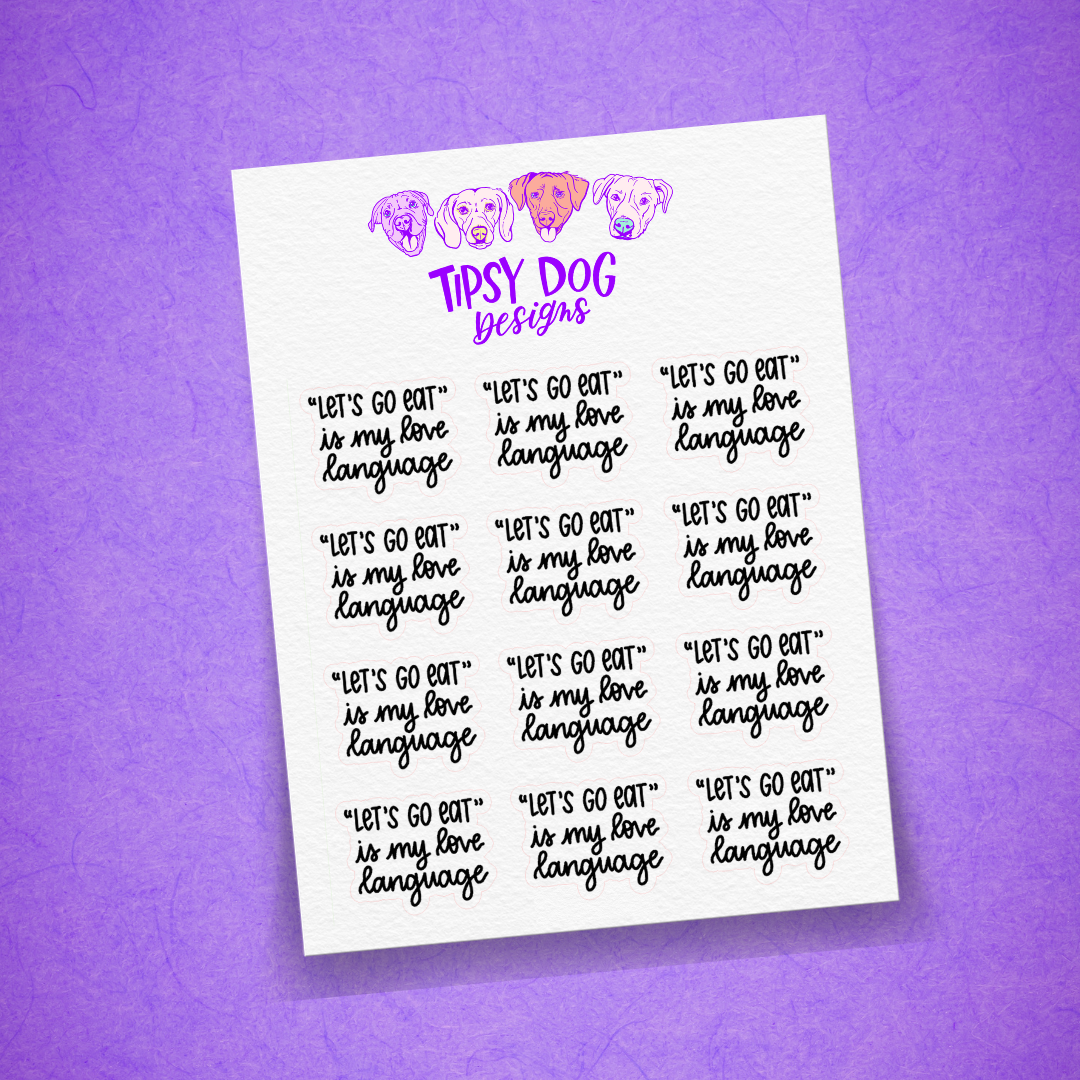 TIPSY DOG
Designs
“LET'S GO eaT” “LET'S GO eaT” “LET'S GO eaT”
is my love is my love is my love
language language language
“LET'S GO eaT” “LET'S GO eaT” “LET'S GO eaT”
is my love is my love is my love
language language language
“LET'S GO eaT” “LET'S GO eaT” “LET'S GO eaT”
is my love is my love is my love
language language language
“LET'S GO eaT” “LET'S GO eaT” “LET'S GO eaT”
is my love is my love is my love
language language language